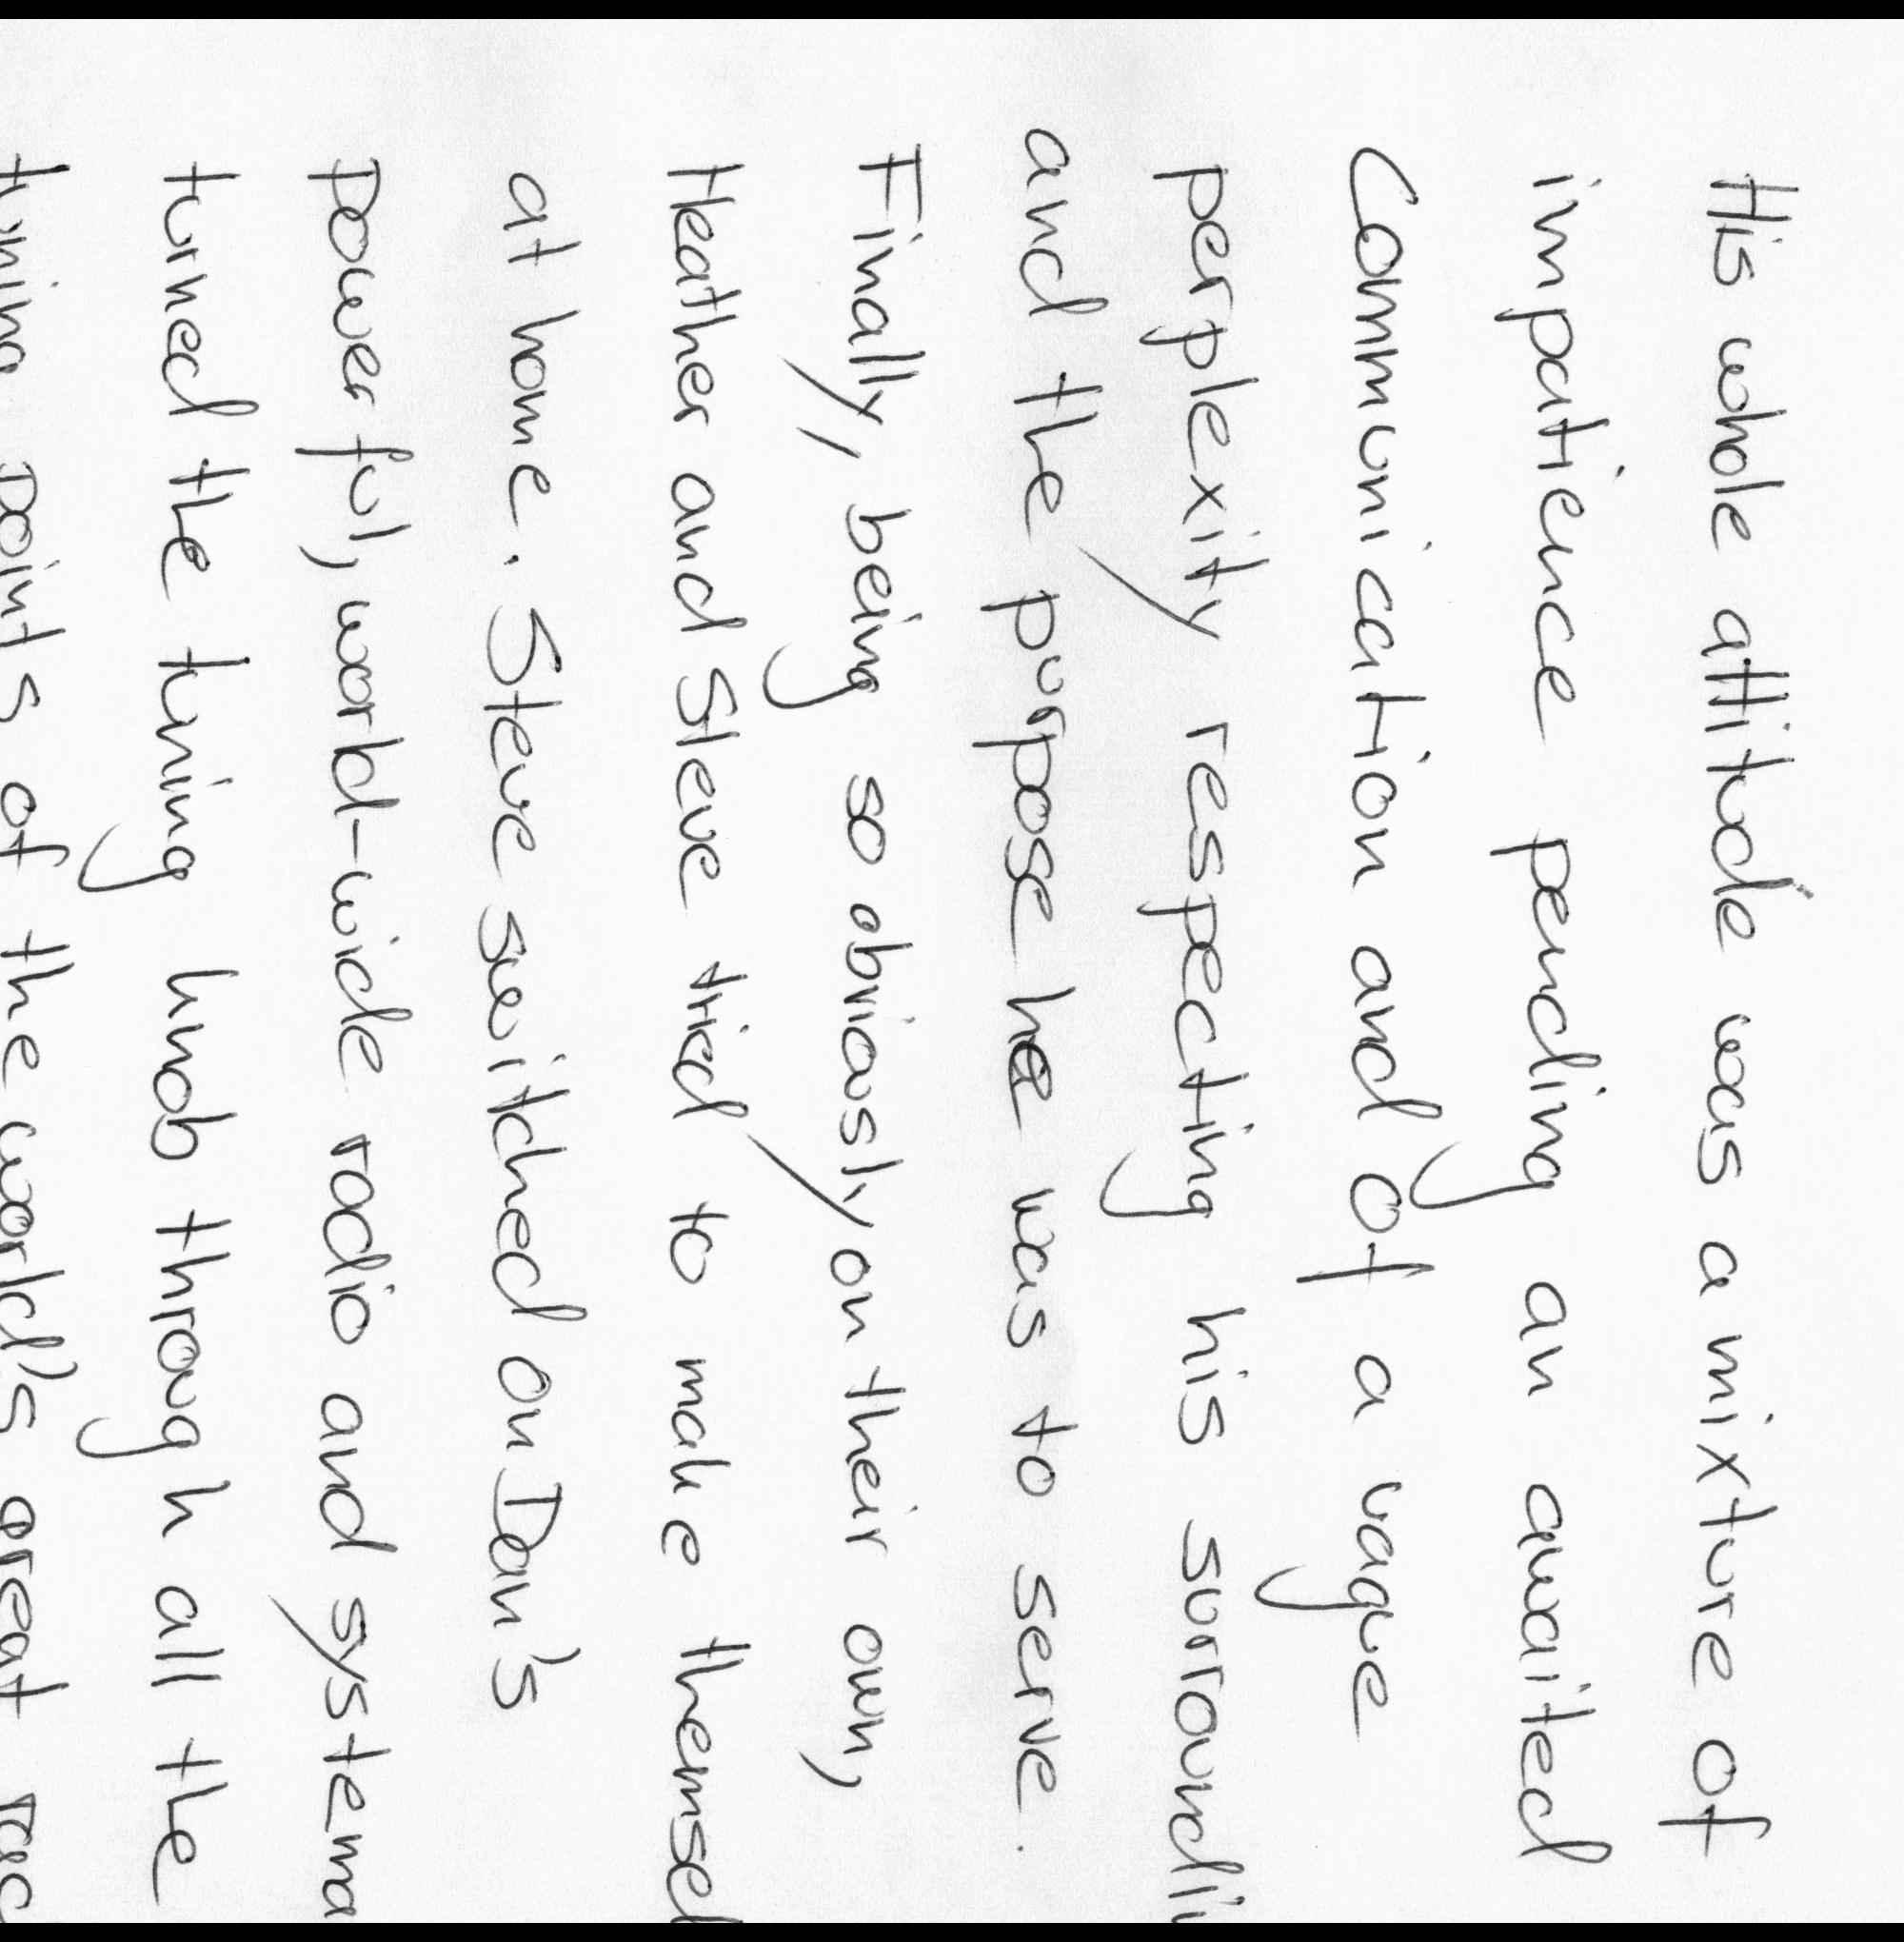 His whole attitude was a mixture of
impatience pending an awaited
Communication and of a vague
perplexity respecting his surroundi
and the purpose he was to serve.
Finally, being so obviously on their own,
Heather and Steve tried to make themsel
at home. Steve switched on Dan's
powerful, world-wide radio and systema
turned the tuning knob through all the
tuning points of the world's great